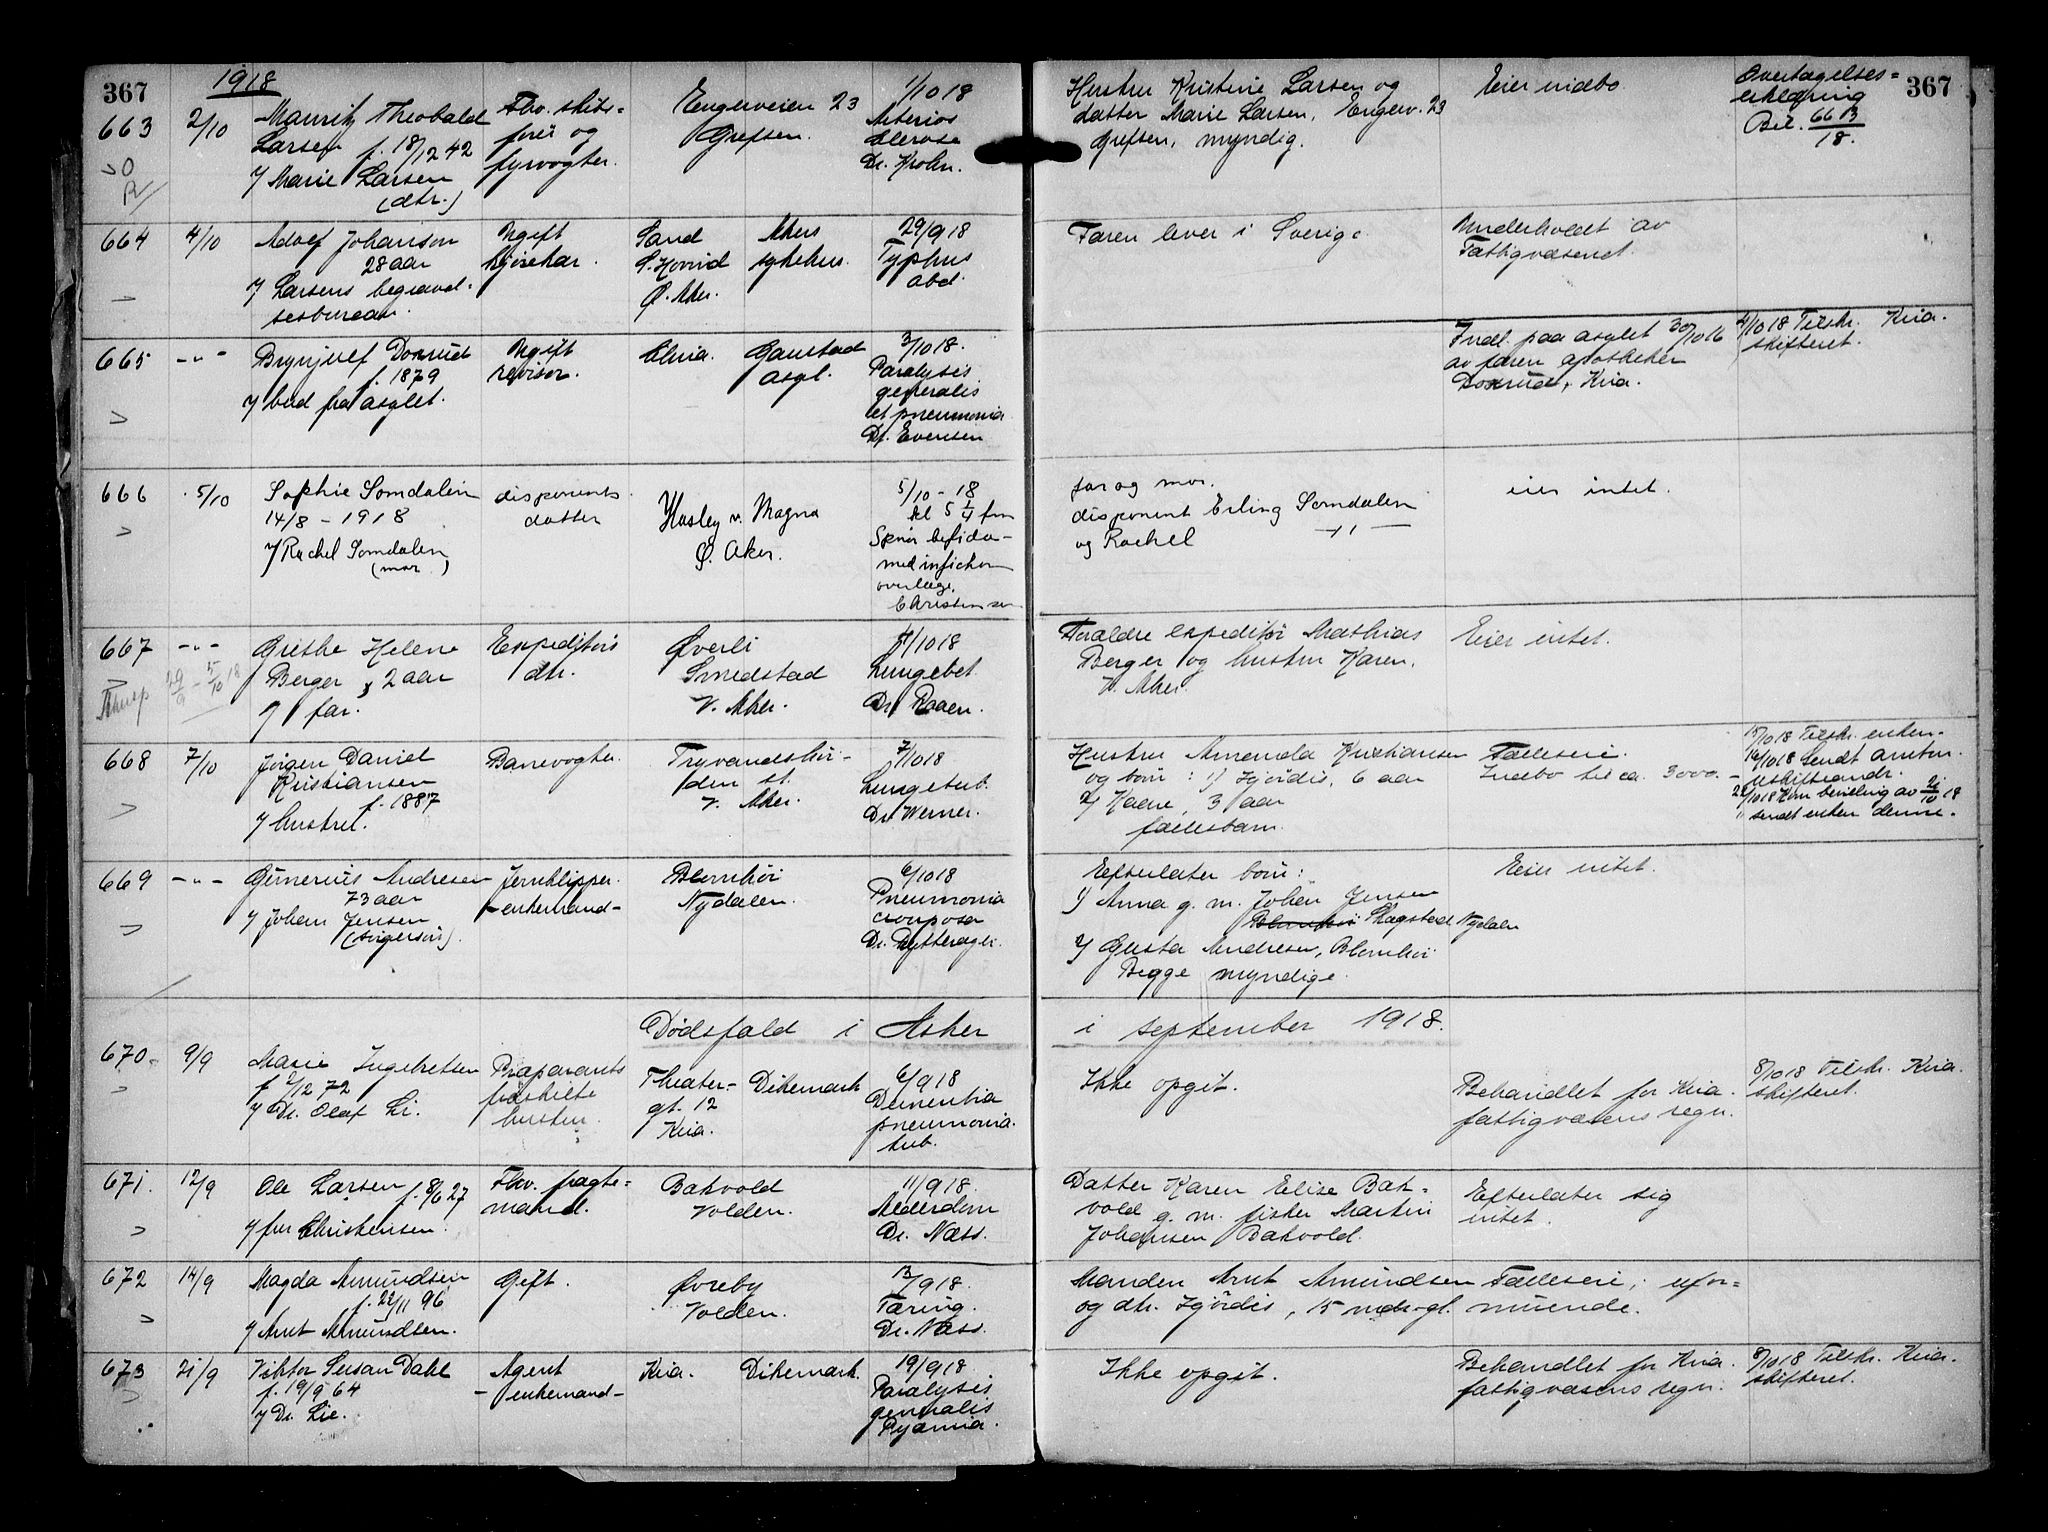 367
1918
663
2/10
Mauritz Theobald
Larsen f. 18/12 42
v/ Marie Larsen
(dtr.)
Fhv. skibs-
og
fyrvogter.
Engerveien 23
Grefsen.
1/10 18
Dr. Krohn.
Hustru Kristine Larsen og
datter Marie Larsen, Engerv. 23
Grefsen, myndig.
Eier indbo
Overtagelses-
erklæring
Bil. 663/18.
367
664
4/10
Adolf Johanson
28 aar
v/ Larsens begravel-
sesbureau.
Ugift
kjørekar.
Sand
Ø. Aker.
Akers
sykehus.
29/9 18
Typhus
abd.
Faren lever i Sverige
Underholdt av
Fattigvæsenet.
665
-"-
Brynjulf Doxrud
f. 1879
v/ bud fra asylet.
Ugift
revisor.
Chria.
Gaustad
asyl.
3/10 18.
Paralysis
generalis
et pneumonia
Dr. Evensen
Indl. paa asylet 30/10 16
av faren apotheker
Doxrud, Kria.
4/10 18 Tilskr. Kria.
skifteret.
666
5/10
Sophie Somdalen
14/8 - 1918
v/ Rachel Somdalen
(mor)
disponents
datter
Hasley v. Magna
Ø. Aker.
5/10 - 18
kl 5 1/4 fm
overlæge
Christensen
far og mor.
disponent Erling Somdalen
og Rachel -"-
eier intet.
667
-"-
Grethe Helene
Berger, 2 aar
v/ far.
Expeditørs
dtr.
Øverli
Smedstad
V. Aker.
4/10 18
Lungebet.
Dr. Raaen.
Forældre expeditør Mathias
Berger og hustru Karen,
V. Aker.
Eier intet.
668
7/10
Jørgen Daniel
Kristiansen
f. 1887
v/ hustru.
Banevogter.
Tryvandshø-
den st.
V. Aker.
7/10 18
Lungetub.
Dr. Werner.
Hustru Amanda Kristiansen
og børn: 1) Hjørdis, 6 aar
2) Kaare, 3 aar
fællesbarn.
Fælleseie.
Indbo til ca. 3000.-
15/10 18 Tilskr. enken.
16/10 18 Sendt amtm.
uskifteandr.
22/10 18 Kom bevilling av 21/10 18
" sendt enken denne.
669
-"-
Gunerius Andresen
73 aar
v/ Johan Jensen
(svigersøn).
Jernklipper.
- enkemand -
Blomhøi
Nydalen.
6/10 18
Pneumonia
crouposa
Dr. Rytterager.
Efterlater børn:
1) Anna g. m. Johan Jensen
Blomhøi Skagstad Nydalen
2) Gusta Andresen, Blomhøi
Begge myndige.
Eier intet.
Dødsfald i Asker
i september 1918.
670
9/9
Marie Ingebretsen
f. 2/12 72
v/ Dr. Olaf Li.
Præparants
fraskilte
hustru.
Theater-
gt. 12
Kria.
Dikemark
6/9 18
Dementia
pneumonia.
tub.
Ikke opgit.
Behandlet for Kria.
fattigvæsens regn.
8/10 18 Tilskr. Kria.
skifteret.
671.
12/9
Ole Larsen f. 8/6 27
v/ fru Christensen.
Fhv. fragte-
mand.
Bakvold
Volden.
11/9 18.
Alderdom
Dr. Næss.
Datter Karen Elise Bak-
vold g. m. fisker Martin
Johansen Bakvold.
Efterlater sig
intet.
672
14/9
Magda Amundsen
f. 22/11 96
v/ Arnt Amundsen.
Gift.
Øvreby
Volden.
13/9 18.
Tæring.
Dr. Næss.
Manden Arnt Amundsen
og dtr. Hjørdis, 15 mdr. gl.
Fælleseie; ufor-
muende.
673
21/9
Viktor Susan Dahl
f. 19/9 64
v/ Dr. Lie.
Agent
- enkemand -
Kria.
Dikemark.
19/9 18
Paralysis
generalis
Pyæmia.
Ikke opgit.
Behandlet for Kria.
fattigvæsens regn.
8/10 18 Tilskr. Kria.
skifteret.